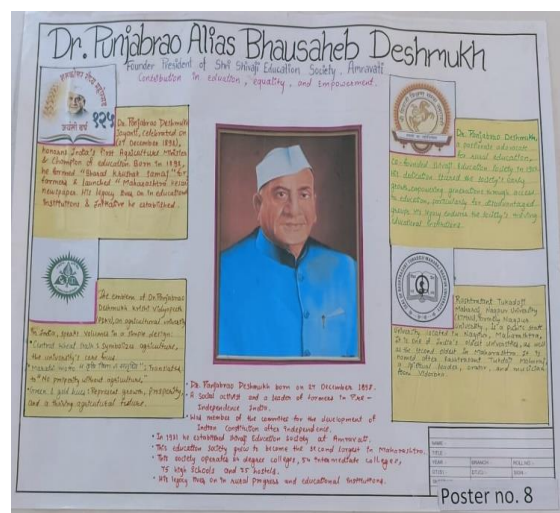 Dr. Punjabrao Alias Bhausaheb Deshmukh
Founder President of Shri Shivaji Education Society, Amravati
Contribution in education, equality, and Empowerment.
१२५
जयंती वर्ष
Dr. Punjabrao Deshmukh
Jayanti, celebrated on
(27 December 1898),
honours India's First Agriculture Minister
& Champion of education. Born in 1898,
he formed "Bharat Krushak Samaj" for
farmers & launched "Maharashtra Kesari
newspaper. His legacy lives on in education
Institutions & Initiative he established.
Dr. Punjabrao Deshmukh,
a passionate advocate
for rural education,
co-founded Shivaji Education Society in
His dedication shaped the society's
empowering generations through access
to education, particularly for disadvantaged
groups. His legacy endures the society's thriving
educational institutions.
The emblem of Dr. Punjabrao
Deshmukh Krishi Vidyapeeth
(PDKV), an agricultural university
in India, speaks volumes in a simple design:
Central wheat stalk: Symbolizes agriculture,
the university's core focus.
translates
to "No prosperity without agriculture."
Green & gold hues: Represent growth, prosperity
and a thriving agricultural future.
Rashtrasant Tukadoji
Maharaj Nagpur University
formerly Nagpur
University, is a public state
University located in Nagpur, Maharashtra.
It is one of India's oldest universities, as well
as the second oldest in Maharashtra. It is
named after Rashtrasant Tukdoji Maharaj,
a spiritual leader, orator, and musician
from Vidarbha
Dr. Punjabrao Deshmukh born on 27 December 1898.
A Social activist and a leader of farmers in Pre-
Independence India.
Was member of the committee for the development of
Indian Constitution after Independence.
In 1931 he established Shivaji Education Society at Amravati.
This education society grew to become the second largest in Maharashtra.
This society operates degree colleges, 54 intermediate colleges,
75 high Schools and 35 hostels.
His legacy lives on in rural progress and educational Institutions.
NAME :
TITLE :
YEAR BRANCH ROLL NO :
Poster no. 8